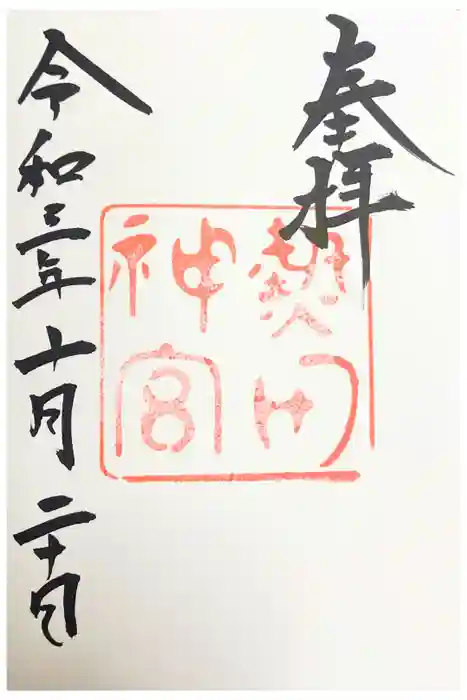 奉拝
熱田
神宮
令和三年十月二十日